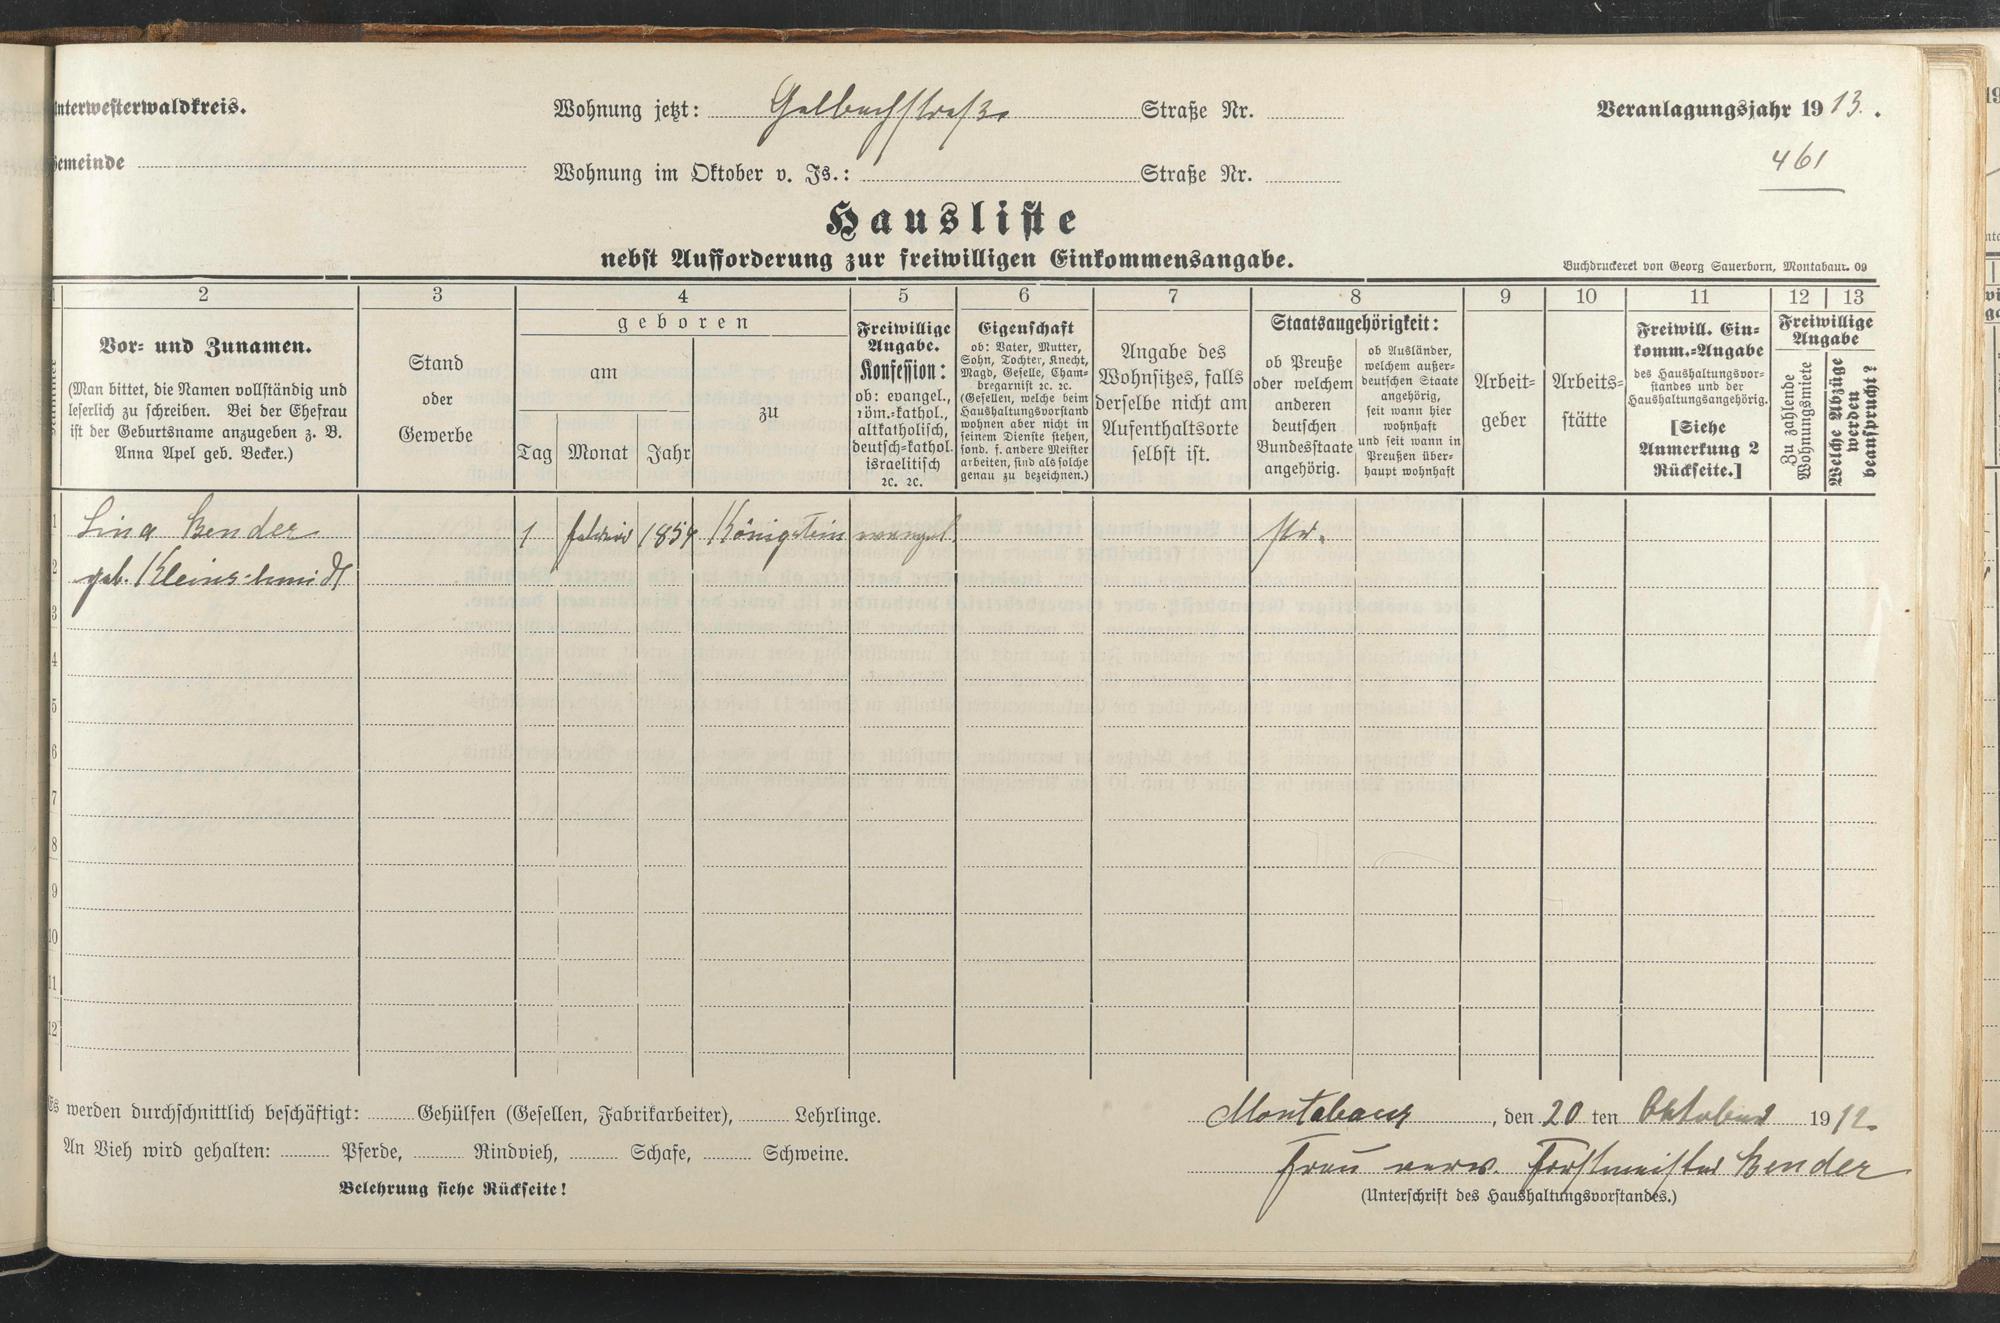 nterwesterwaldkreis.
Wohnung jetzt: Gelbachstraße Straße Nr.
Veranlagungsjahr 1913.
emeinde
Wohnung im Oktober v. Js.: Straße Nr.
461
Hausliste
nebst Aufforderung zur freiwilligen Einkommensangabe.
Buchdruckerei von Georg Sauerborn, Montabaur. 09
1 2 3 4 5 6 7 8 9 10 11 12 13
Vor- und Zunamen.
(Man bittet, die Namen vollständig und
leserlich zu schreiben. Bei der Ehefrau
ist der Geburtsname anzugeben z. B.
Anna Apel geb. Becker.)
Stand
oder
Gewerbe
geboren
am
zu
Tag Monat Jahr
Freiwillige
Angabe.
Konfession:
ob: evangel.,
röm.-kathol.,
altkatholisch,
deutsch-kathol.
israelitisch
2c. 2c.
Eigenschaft
ob: Vater, Mutter,
Sohn, Tochter, Knecht,
Magd, Geselle, Cham-
bregarnist 2c. 2c.
(Gesellen, welche beim
Haushaltungsvorstand
wohnen aber nicht in
seinem Dienste stehen,
sond. f. andere Meister
arbeiten, sind als solche
genau zu bezeichnen.)
Angabe des
Wohnsitzes, falls
derselbe nicht am
Aufenthaltsorte
selbst ist.
Staatsangehörigkeit:
ob Preuße
oder welchem
anderen
deutschen
Bundesstaate
angehörig.
ob Ausländer,
welchem außer-
deutschen Staate
angehörig,
seit wann hier
wohnhaft
und seit wann in
Preußen über-
haupt wohnhaft
Arbeit-
geber
Arbeits-
stätte
Freiwill. Ein-
komm.-Angabe
des Haushaltungsvor-
standes und der
Haushaltungsangehörig.
[Siehe
Anmerkung 2
Rückseite.]
Freiwillige
Angabe
Zu zahlende
Wohnungsmiete
Welche Abzüge
werden
beansprucht?
1 Lina Bender 1 Königstein evangel.
2 geb. Kleinschmidt
3
4
5
6
7
8
9
10
11
12
Es werden durchschnittlich beschäftigt: Gehülfen (Gesellen, Fabrikarbeiter), Lehrlinge.
Montabaur, den 20 ten Oktober 1912.
An Vieh wird gehalten: Pferde, Rindvieh, Schafe, Schweine.
Frau verw. Forstmeister Bender
Belehrung siehe Rückseite!
(Unterschrift des Haushaltungsvorstandes.)